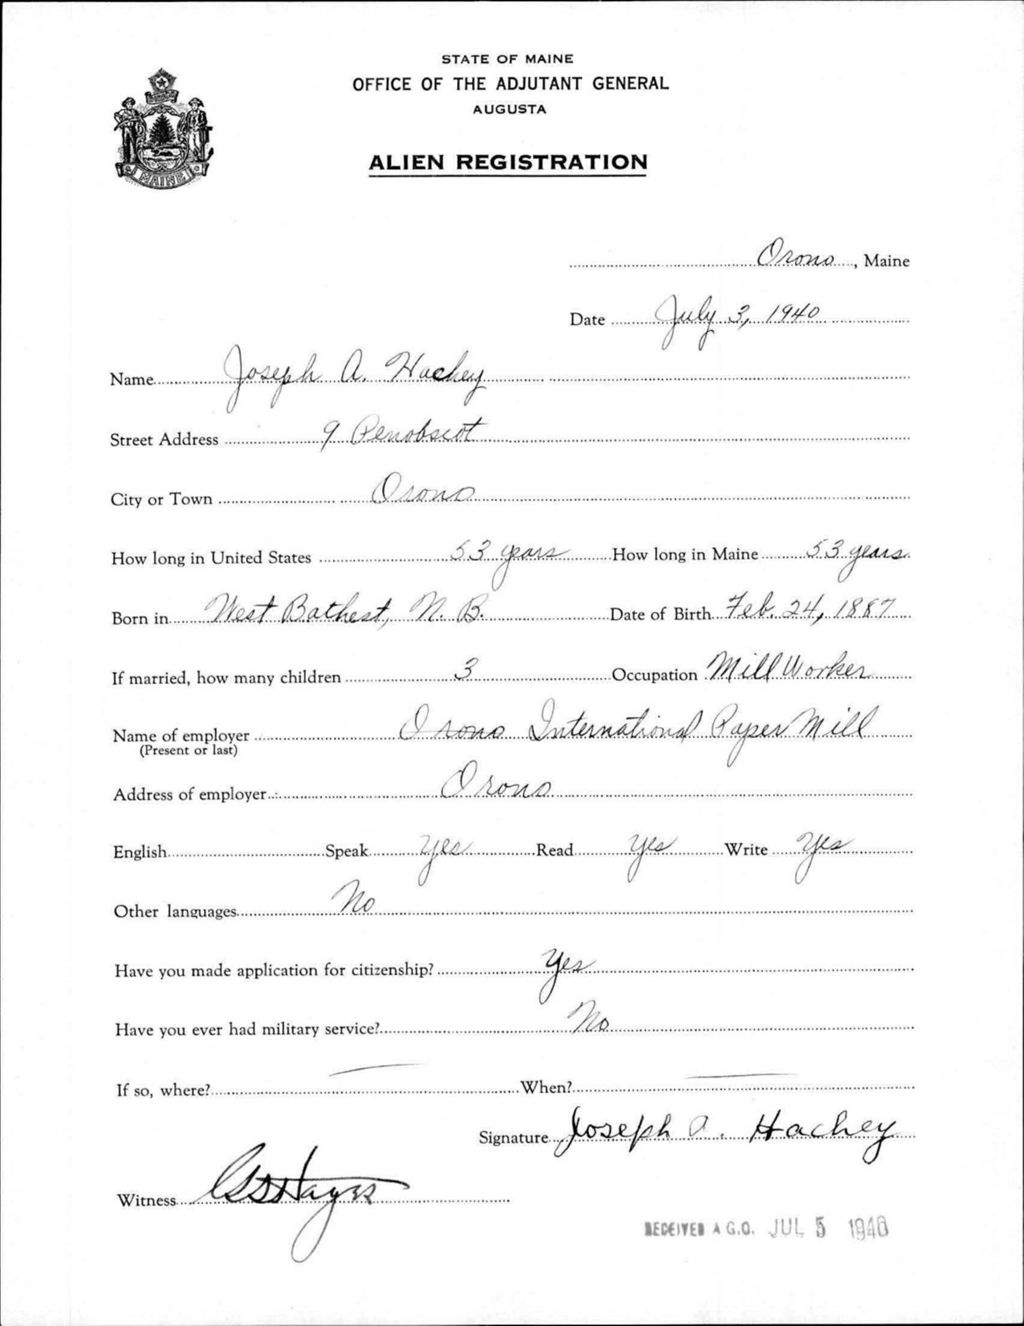 STATE OF MAINE
OFFICE OF THE ADJUTANT GENERAL
AUGUSTA
ALIEN REGISTRATION
MAINE
Orono, Maine
Date July 3, 1940
Name Joseph A. Hachey
Street Address 9 Penobscot
City or Town Orono
How long in United States 53 years How long in Maine 53 years
Born in West Bathest, N. B. Date of Birth Feb. 24, 1887
If married, how many children 3 Occupation Mill Worker
Name of employer Orono International Paper Mill
(Present or last)
Address of employer Orono
English Speak Yes Read Yes Write Yes
Other languages No
Have you made application for citizenship? Yes
Have you ever had military service? No
If so, where? — When? —
Signature Joseph A. Hachey
Witness Hayes
RECEIVED A.G.O. JUL 5 1940